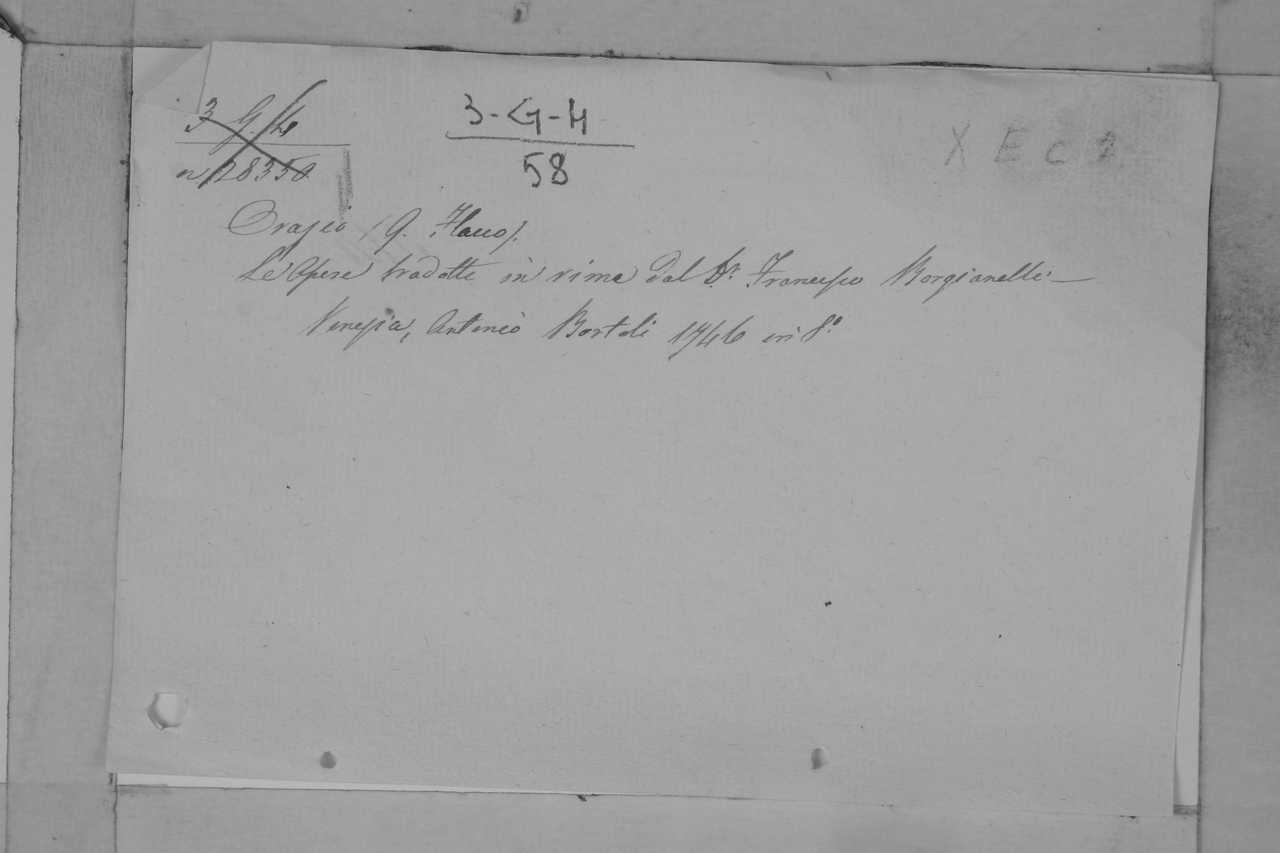 3 G. 4 3-G-H X E C
n 28350 58
Orazio (Q. Flacco).
Le Opere tradotte in rima dal Dr. Francesco Borgianelli —
Venezia, Antonio Bortoli 1746 in 8.º